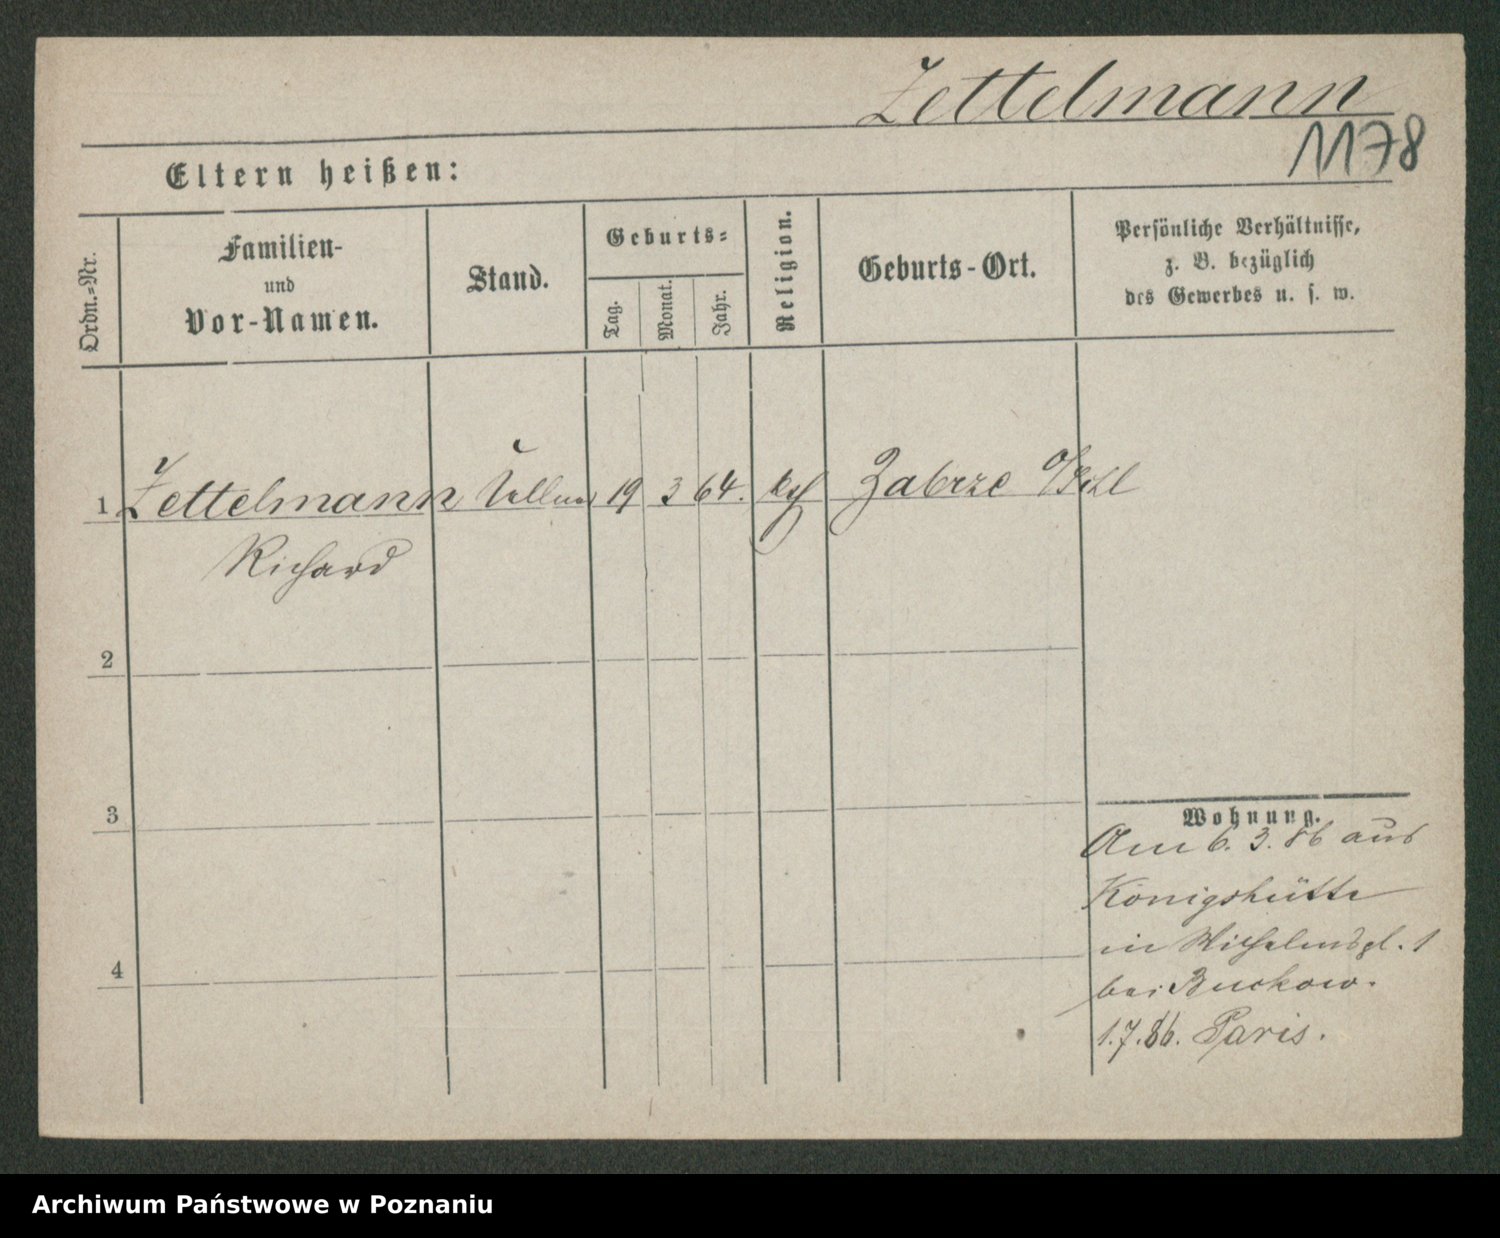 Zettelmann
1178
Eltern heißen:
Ordn.-Nr.
Familien-
und
Vor-Namen.
Stand.
Geburts-
Tag.
Monat.
Jahr.
Religion.
Geburts-Ort.
Persönliche Verhältnisse,
z. B. bezüglich
des Gewerbes u. s. w.
1 Zettelmann Kellner 19 3 64. kth Zabrze O/Schl
Richard
2
3
4
Wohnung.
Am 6. 3. 86 aus
Königshütte
in Wilhelmspl. 1
bei Buckow.
1.7.86. Paris.
Archiwum Państwowe w Poznaniu